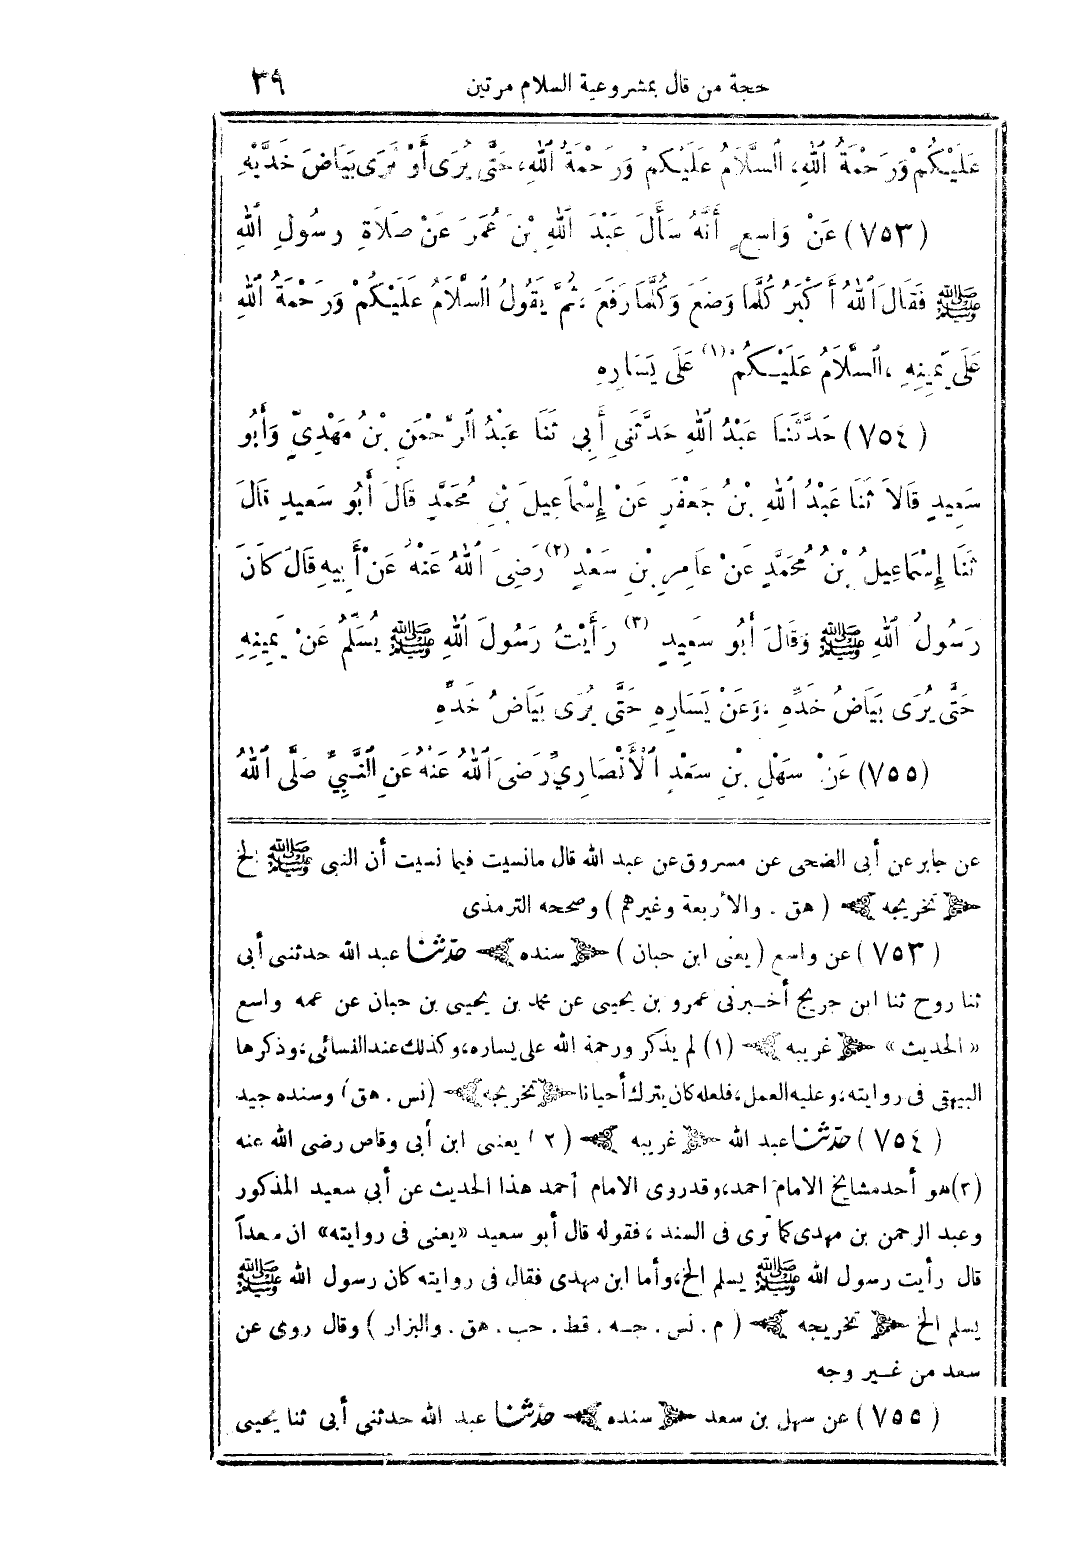 حجة من قال بمشروعية السلام مرتين ٣٩
عَلَيْكُمْ وَرَحْمَةُ اللهِ، السَّلَامُ عَلَيْكُمْ وَرَحْمَةُ اللهِ، حَتَّى يُرَى أَوْ نَرَى بَيَاضَ خَدَّيْهِ
(٧٥٣) عَنْ وَاسِعٍ أَنَّهُ سَأَلَ عَبْدَ اللهِ بْنَ عُمَرَ عَنْ صَلَاةِ رَسُولِ اللهِ
ﷺ فَقَالَ اللهُ أَكْبَرُ كُلَّمَا وَضَعَ وَكُلَّمَا رَفَعَ، ثُمَّ يَقُولُ السَّلَامُ عَلَيْكُمْ وَرَحْمَةُ اللهِ
عَلَى يَمِينِهِ، السَّلَامُ عَلَيْكُمْ (١) عَلَى يَسَارِهِ
(٧٥٤) حَدَّثَنَا عَبْدُ اللهِ حَدَّثَنِي أَبِي ثَنَا عَبْدُ الرَّحْمَنِ بْنُ مَهْدِيٍّ وَأَبُو
سَعِيدٍ قَالَا ثَنَا عَبْدُ اللهِ بْنُ جَعْفَرٍ عَنْ إِسْمَاعِيلَ بْنِ مُحَمَّدٍ قَالَ أَبُو سَعِيدٍ قَالَ
ثَنَا إِسْمَاعِيلُ بْنُ مُحَمَّدٍ عَنْ عَامِرِ بْنِ سَعْدٍ (٢) رَضِيَ اللهُ عَنْهُ عَنْ أَبِيهِ قَالَ كَانَ
رَسُولُ اللهِ ﷺ وَقَالَ أَبُو سَعِيدٍ (٣) رَأَيْتُ رَسُولَ اللهِ ﷺ يُسَلِّمُ عَنْ يَمِينِهِ
حَتَّى يُرَى بَيَاضُ خَدِّهِ، وَعَنْ يَسَارِهِ حَتَّى يُرَى بَيَاضُ خَدِّهِ
(٧٥٥) عَنْ سَهْلِ بْنِ سَعْدٍ الْأَنْصَارِيِّ رَضِيَ اللهُ عَنْهُ عَنِ النَّبِيِّ صَلَّى اللهُ
عن جابر عن أبى الضحى عن مسروق عن عبد الله قال مانسيت فيما نسيت أن النبى ﷺ الخ
﴿ تخريجه ﴾ ( هق . والأربعة وغيرهم ) وصححه الترمذى
(٧٥٣) عن واسع ( يعنى ابن حبان ) ﴿ سنده ﴾ حدّثنا عبد الله حدثنى أبى
ثنا روح ثنا ابن جريج أخبرنى عمرو بن يحيى عن محمد بن يحيى بن حبان عن عمه واسع
« الحديث » ﴿ غريبه ﴾ (١) لم يذكر ورحمة الله على يساره، وكذلك عند النسائى، وذكرها
البيهقى فى روايته، وعليه العمل، فلعله كان يترك أحيانا ﴿ تخريجه ﴾ (نس . هق) وسنده جيد
(٧٥٤) حدّثنا عبد الله ﴿ غريبه ﴾ (٢) يعنى ابن أبى وقاص رضى الله عنه
(٣) هو أحد مشايخ الامام احمد، وقد روى الامام أحمد هذا الحديث عن أبي سعيد المذكور
وعبد الرحمن بن مهدى كما ترى فى السند، فقوله قال أبو سعيد « يعنى فى روايته » ان سعداً
قال رأيت رسول الله ﷺ يسلم الخ، وأما ابن مهدى فقال، فى روايته كان رسول الله ﷺ
يسلم الخ ﴿ تخريجه ﴾ ( م . نس . جه . قط . حب . هق . والبزار ) وقال روى عن
سعد من غير وجه
(٧٥٥) عن سهل بن سعد ﴿ سنده ﴾ حدّثنا عبد الله حدثني أبى ثنا يحيى